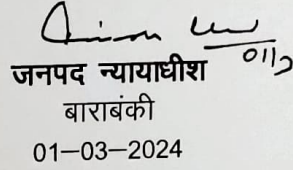 जनपद न्यायाधीश
बाराबंकी
01–03–2024